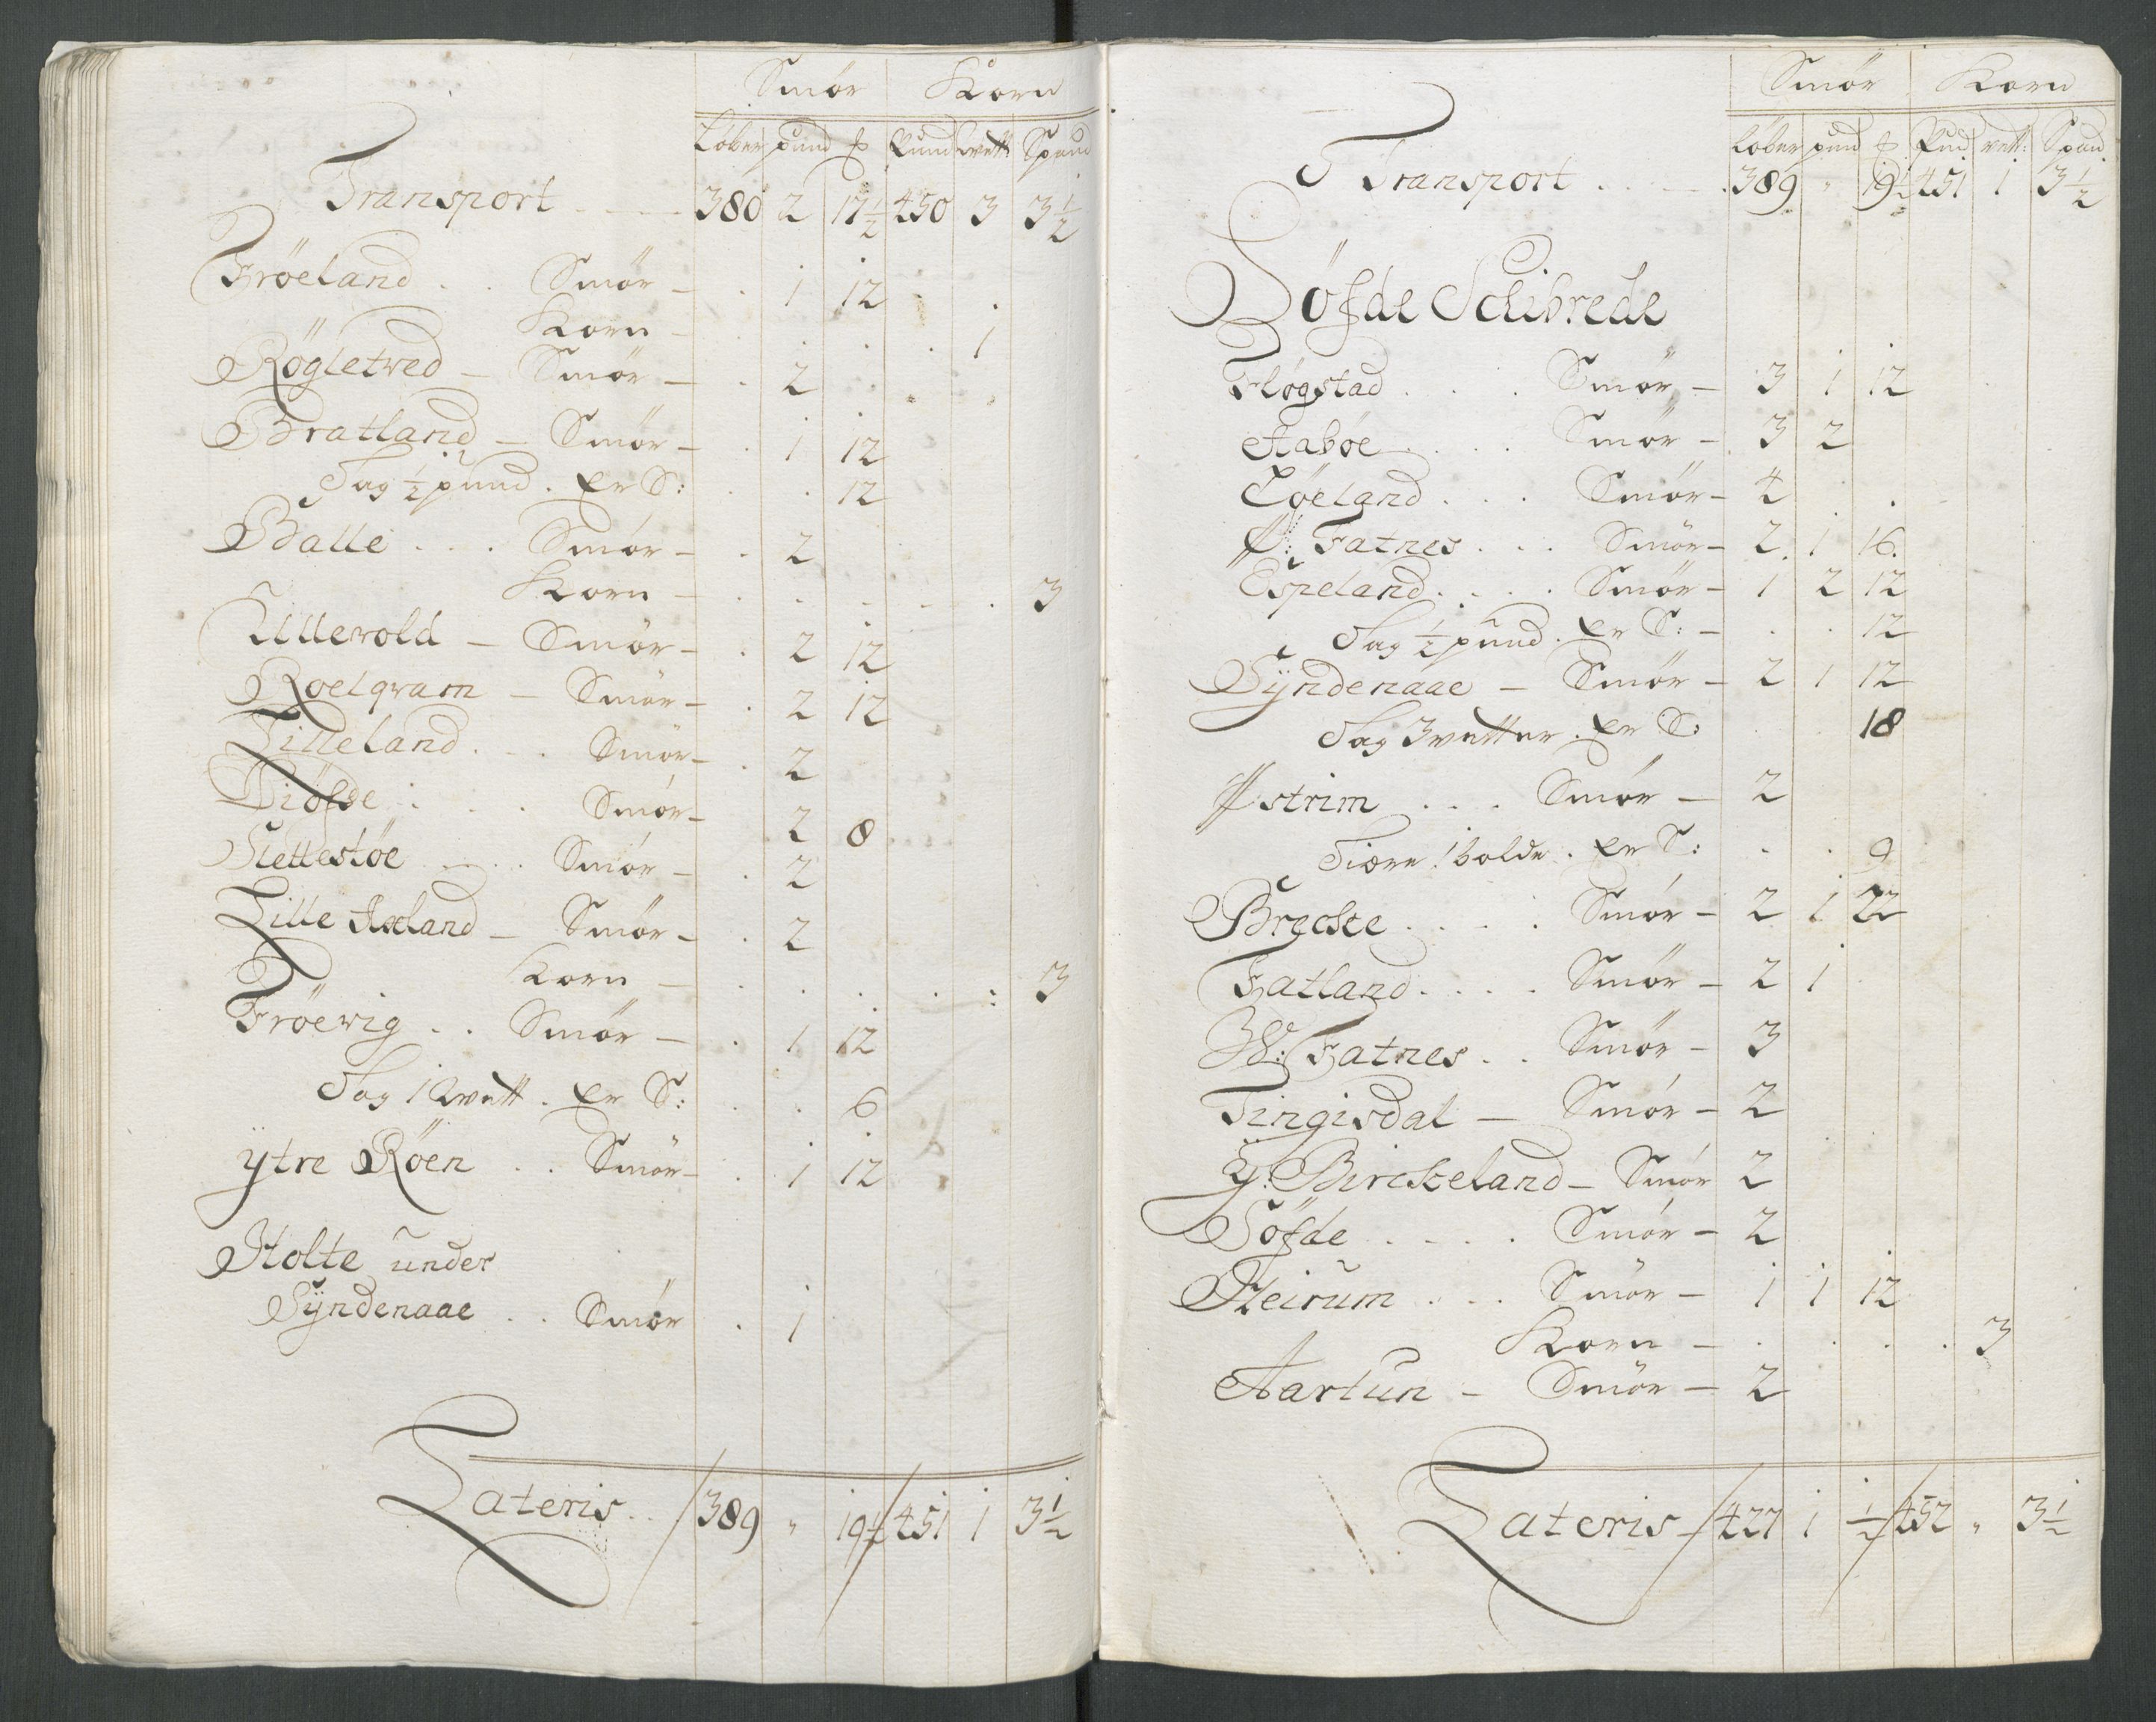 Smör Korn
Löber pund ℔ Pund vett Spand
Transport 380 2 17½ 450 3 3½
Fröeland . . Smör - . 1 12
Korn - . . . . 1
Rögletved - Smör - . 2
Bratland - Smör - . 1 12
Sag ½ pund . er S: . . 12
Balle . . . Smör - . 2
Korn - . . . . . 3
Ullevold - Smör - . 2 12
Roelqvam - Smör - . 2 12
Lilleland . . . Smör - . 2
Smör - 2 8
Slettestöe . . Smör - . 2
Lille Axland - Smör - . 2
Korn - . . . . . 3
Fröevig . . Smör - . 1 12
Sag 1 Qvett . er S: . . 6
ÿtre Röen . . Smör - . 1 12
Holte under
Sÿndenaae . . Smör . 1
Lateris . . 389 " 19½ 451 1 3½
Smör Korn
Löber pund ℔ Pud vett: Spand
Transport . . . . 389 " 19½ 451 1 3½
Söfde Schibrede
Flögstad . . . Smör - 3 1 12
Aaböe . . . . Smör - 3 2
Löeland . . . Smör - 4 . .
Ø: Fatnes . . . Smör - 2 1 16
Espeland . . . . Smör - 1 2 12
Sag ½ pund . er S: - . . 12
Sÿndenaae - Smör - 2 1 12
Sag 3 vetter . er S: . . 18
Østrim . . . Smör - 2
Tiære 1 bolde . er S: . . 9
Brecke . . . . Smör - 2 1 22
Hatland . . . . Smör - 2 1
W: Fatnes . . Smör - 3
Tingisdal - Smör - 2
Y: Birckeland - Smör 2
Söfde . . . . Smör - 2
Heirum . . . Smör - 1 1 12
Korn - . . . . . 3
Aartun - Smör - 2
Lateris - 427 1 ½ 452 " 3½